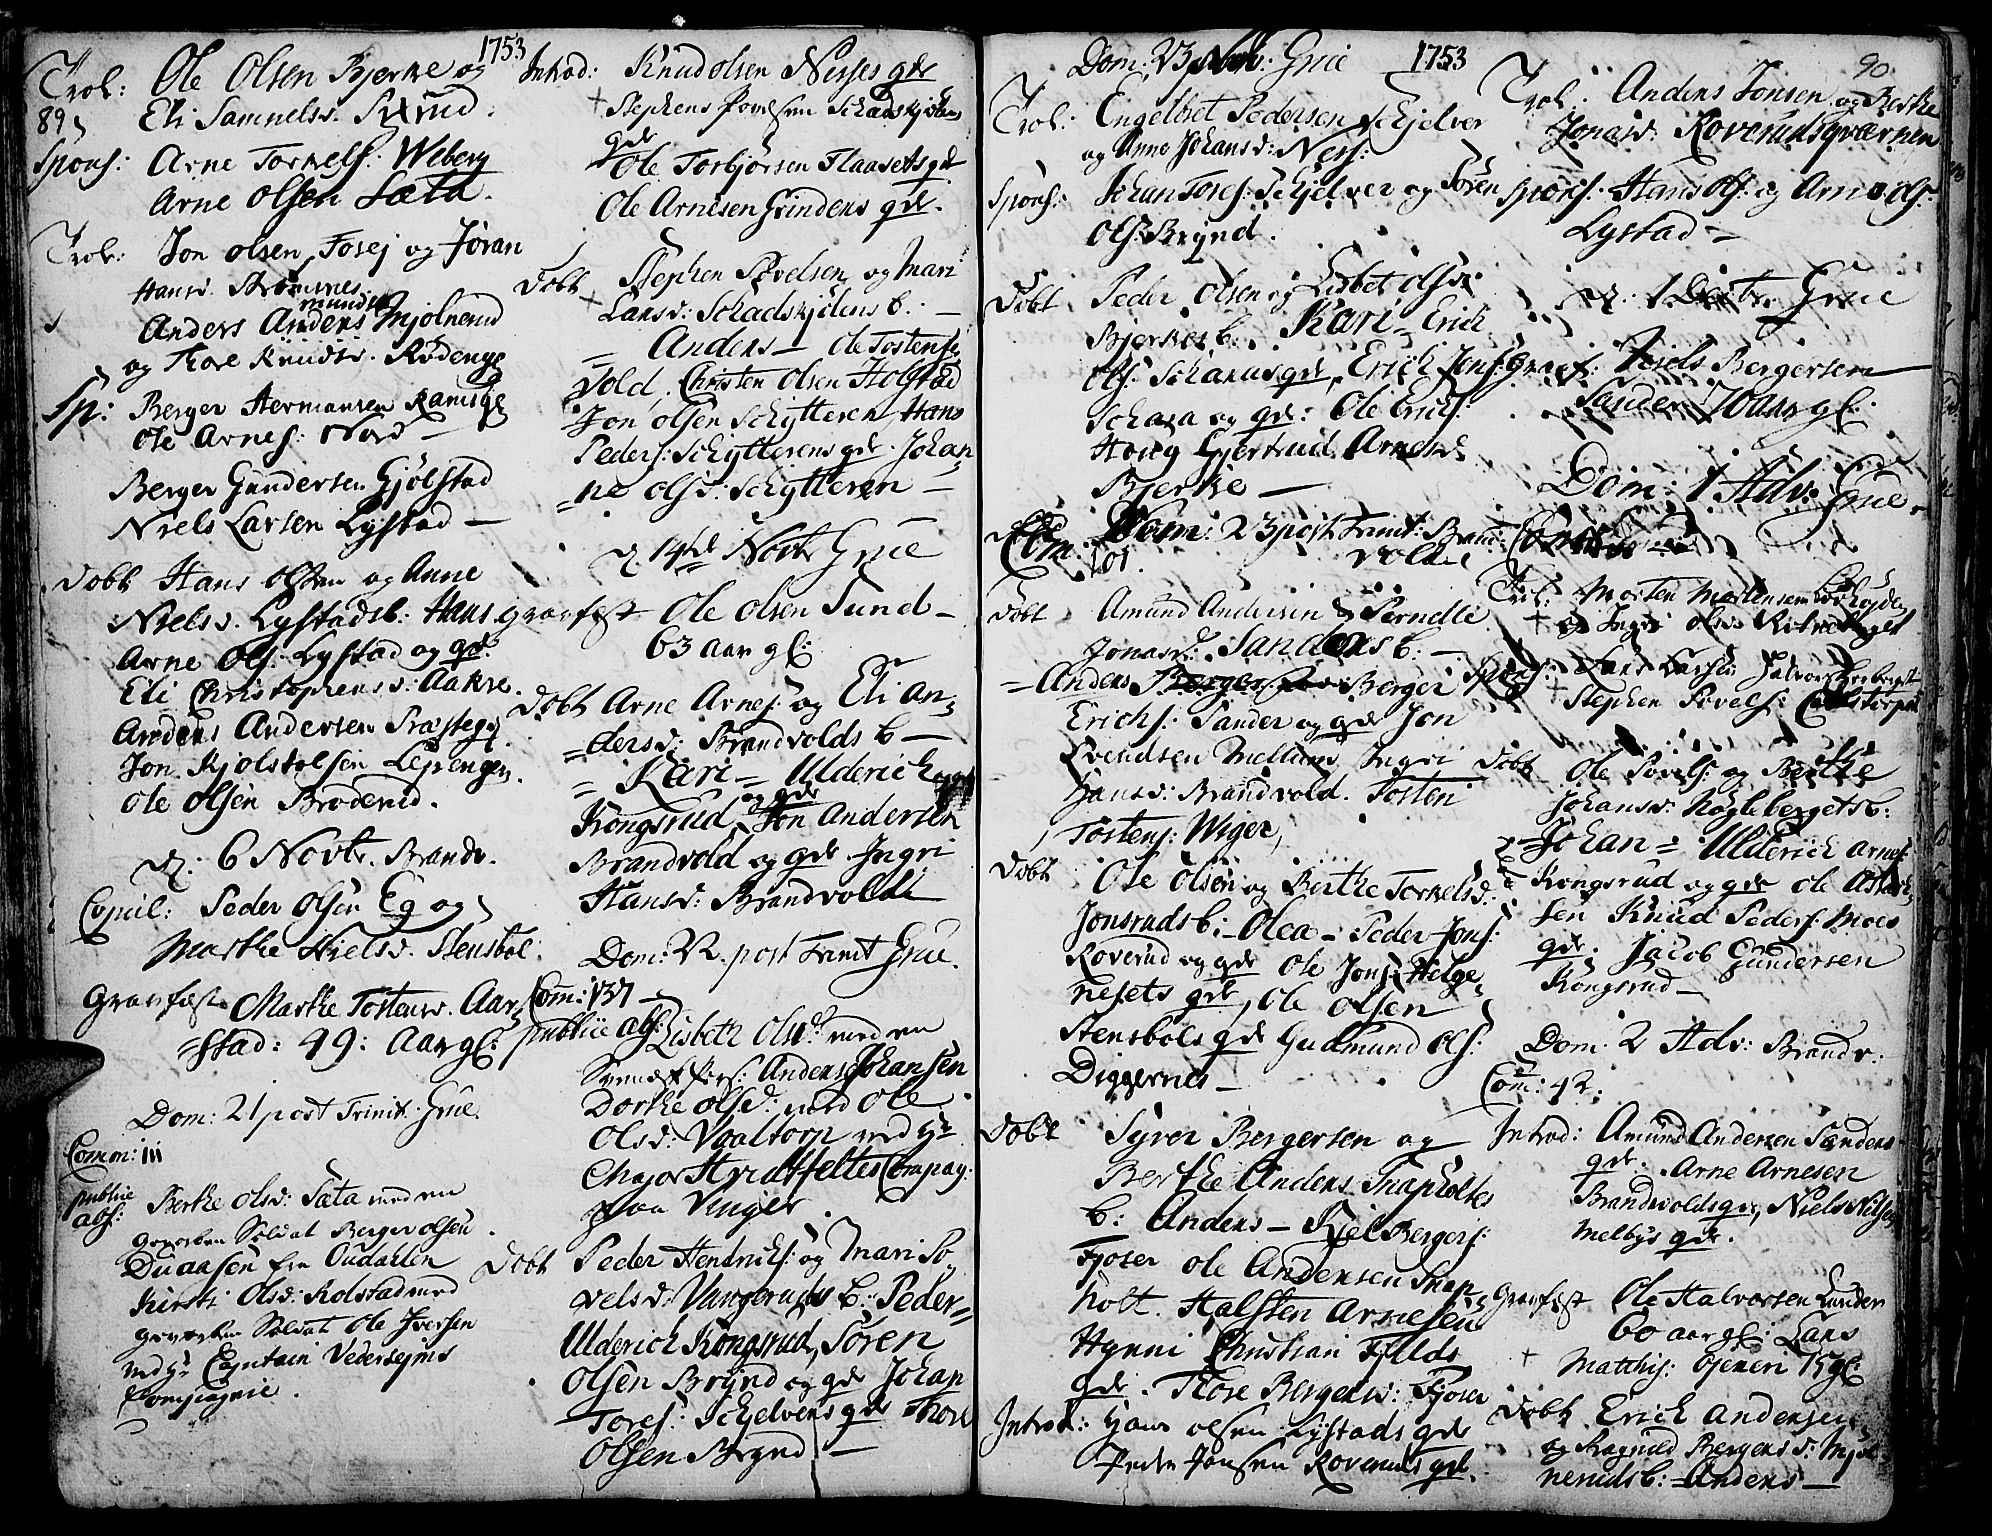 1753
Trol: Ole Olsen Bjerke og
89 Eli Samuelsd.
Spons: Arne Torkels: Weberg
Arne Olsen Sæta.
Trol: Jon Olsen Fosej og Jøran
Hansd. Strømnes
Anders Amundsen Mjølnerud
og Thore Knudsd. Rødenge
Sp: Berger Hermansen Ramsøe
Ole Arnes: Nord —
Berger Gundersen Gjølstad
Niels Larsen Lystad —
Døbt Hans Olsen og Anne
Nielsd. Lystadsb. Hans.
Arne Ols: Lystad og gdr.
Eli Christophersd: Aakre.
Anders Andersen Præsteg.
Jon Kjølstolsen Lejrengen.
Ole Olsen Broderud.
D. 6 Novbr. Brandv.
Copul: Peder Olsen Eg og
Marthe Nielsd. Stensbøl.
Gravfæst Marthe Tostensd. Aar-
stad: 49: Aar gl:
Dom: 21 post Trinit. Grue.
Comm: 111
publice abs: Berthe Olsd: Sæta med en
geworben Soldat Berger Olsen
fra Oudahlen
Kirsti Olsd: Rolstad med
geworben Soldat Ole Iversen
ved Hr Capitain Vedersejms
Compagnie.
Introd: Knud Olsen Nesses gdr
+ Stephens Povelsen Schadskjølens
gdr
Ole Torbjørsen Flaasets gdr
Ole Arnesen Grindens gdr.
Døbt Stephen Povelsen og Mari
+ Larsd: Schadskjølens b: —
= Anders — Ole Tostens:
Vold, Christen Olsen Holstad
Jon Olsen Schytteren, Hans
Peders: Schytterens gdr. Johan-
ne Olsd: Schytteren —
D. 14de Novbr Grue
gravfæst Ole Olsen Sund —
63 aar gl:
Døbt Arne Arnes: og Eli An-
dersd: Brandvolds b —
= Kari = Ulderich
Kongsrud og gdr Jon Andersen
Brandvold og gdr. Ingri
Hansd: Brandvold
Dom: 22. post Trinit Grue.
Com: 137 —
publice abs: Lisbeth Olsd: med en
Anders Johansen
Dorthe Olsd: med Ole
Olsd: Vaaltorp ved Hr
Major Hvatfeltes Compag:
paa Vinger.
Døbt Peder Hendrichs: og Mari Po-
velsd: Vangeruds b: Peder =
Ulderich Kongsrud, Søren
Olsen Brynd og gdr Johan
Tores: Schjelvens gdr Thore
Olsen Brynd —
Dom: 23 post: Grue 1753
90
Trol: Engelbret Pedersen Schjelver
og Anne Johansd: Ness:
Spons: Johan Tores: Schjelver og Søren
Ols: Brynd.
Døbt Peder Olsen og Lisbet Olsd:
Bjerkes b: Kari = Erich
Ols: Schara gdr, Erich Jons:
Schara og gdr: Ole Erichs:
Houg Gjertrud Arnesd:
Bjerke —
Dom: 23 post Trinit: Brand-
Com: 101. vold
Døbt Amund Andersen og Pernelle
Jonasd: Sandens b: —
= Anders Berger
Erichs: Sander og gdr Jon
Svendsen Mellum, Ingri
Hansd: Brandvold. Tosten
Tostens: Wiger,
Døbt Ole Olsen og Berthe Torkelsd:
Jonsruds b: Olea — Peder Jons:
Roverud og gdr Ole Jons: Helge-
nesets gdr, Ole Olsen
Stensbøls gdr Gudmund Ols:
Diggernes —
Døbt Syver Bergersen og
Berthe Anders Snapholtes
b: Anders — Kiel Bergers:
Fjoser Ole Andersen Snap-
holt. Halsten Arnesen
Hynni Christian Fjelds
gdr. Thore Bergersd: Fjoser
Introd: Hans Olsen Lystads gdr
Peder Jonsen Roveruds gdr.
Trol: Anders Jonsen og Berthe
Jonasd: Roverudsqværnen
Spons: Hans Ols: og Arne Ols:
Lystad —
D. 1 Decbr. Grue
Gravf: Niels Bergersen
Sander 70 aar gl.
Dom: 1 Adv: Grue.
Trol: Morten Mortensen
+ og Ingri Olsd.
Spons: Lars Larsen
+ Stephen Povels:
Døbt Ole Povels: og Berthe
Johansd: Nøglebergets b:
Johan = Ulderich Arnes:
Kongsrud og gdr Ole
sen Knud Peders: Moes
gdr. Jacob Gundersen
Kongsrud —
Dom: 2 Adv: Brandv:
Com: 42.
Introd: Amund Andersen Sanders
gdr. Arne Arnesen
Brandvolds gdr, Niels Nilsen
Melbys gdr.
Gravfæst Ole Halvorsen Lunder
60 aar gl: Lars
+ Matthis: Ojeneri 15 gl:
Døbt Erich Andersen
og Ragnild Bergersd: Mjøl-
neruds b: = Anders —